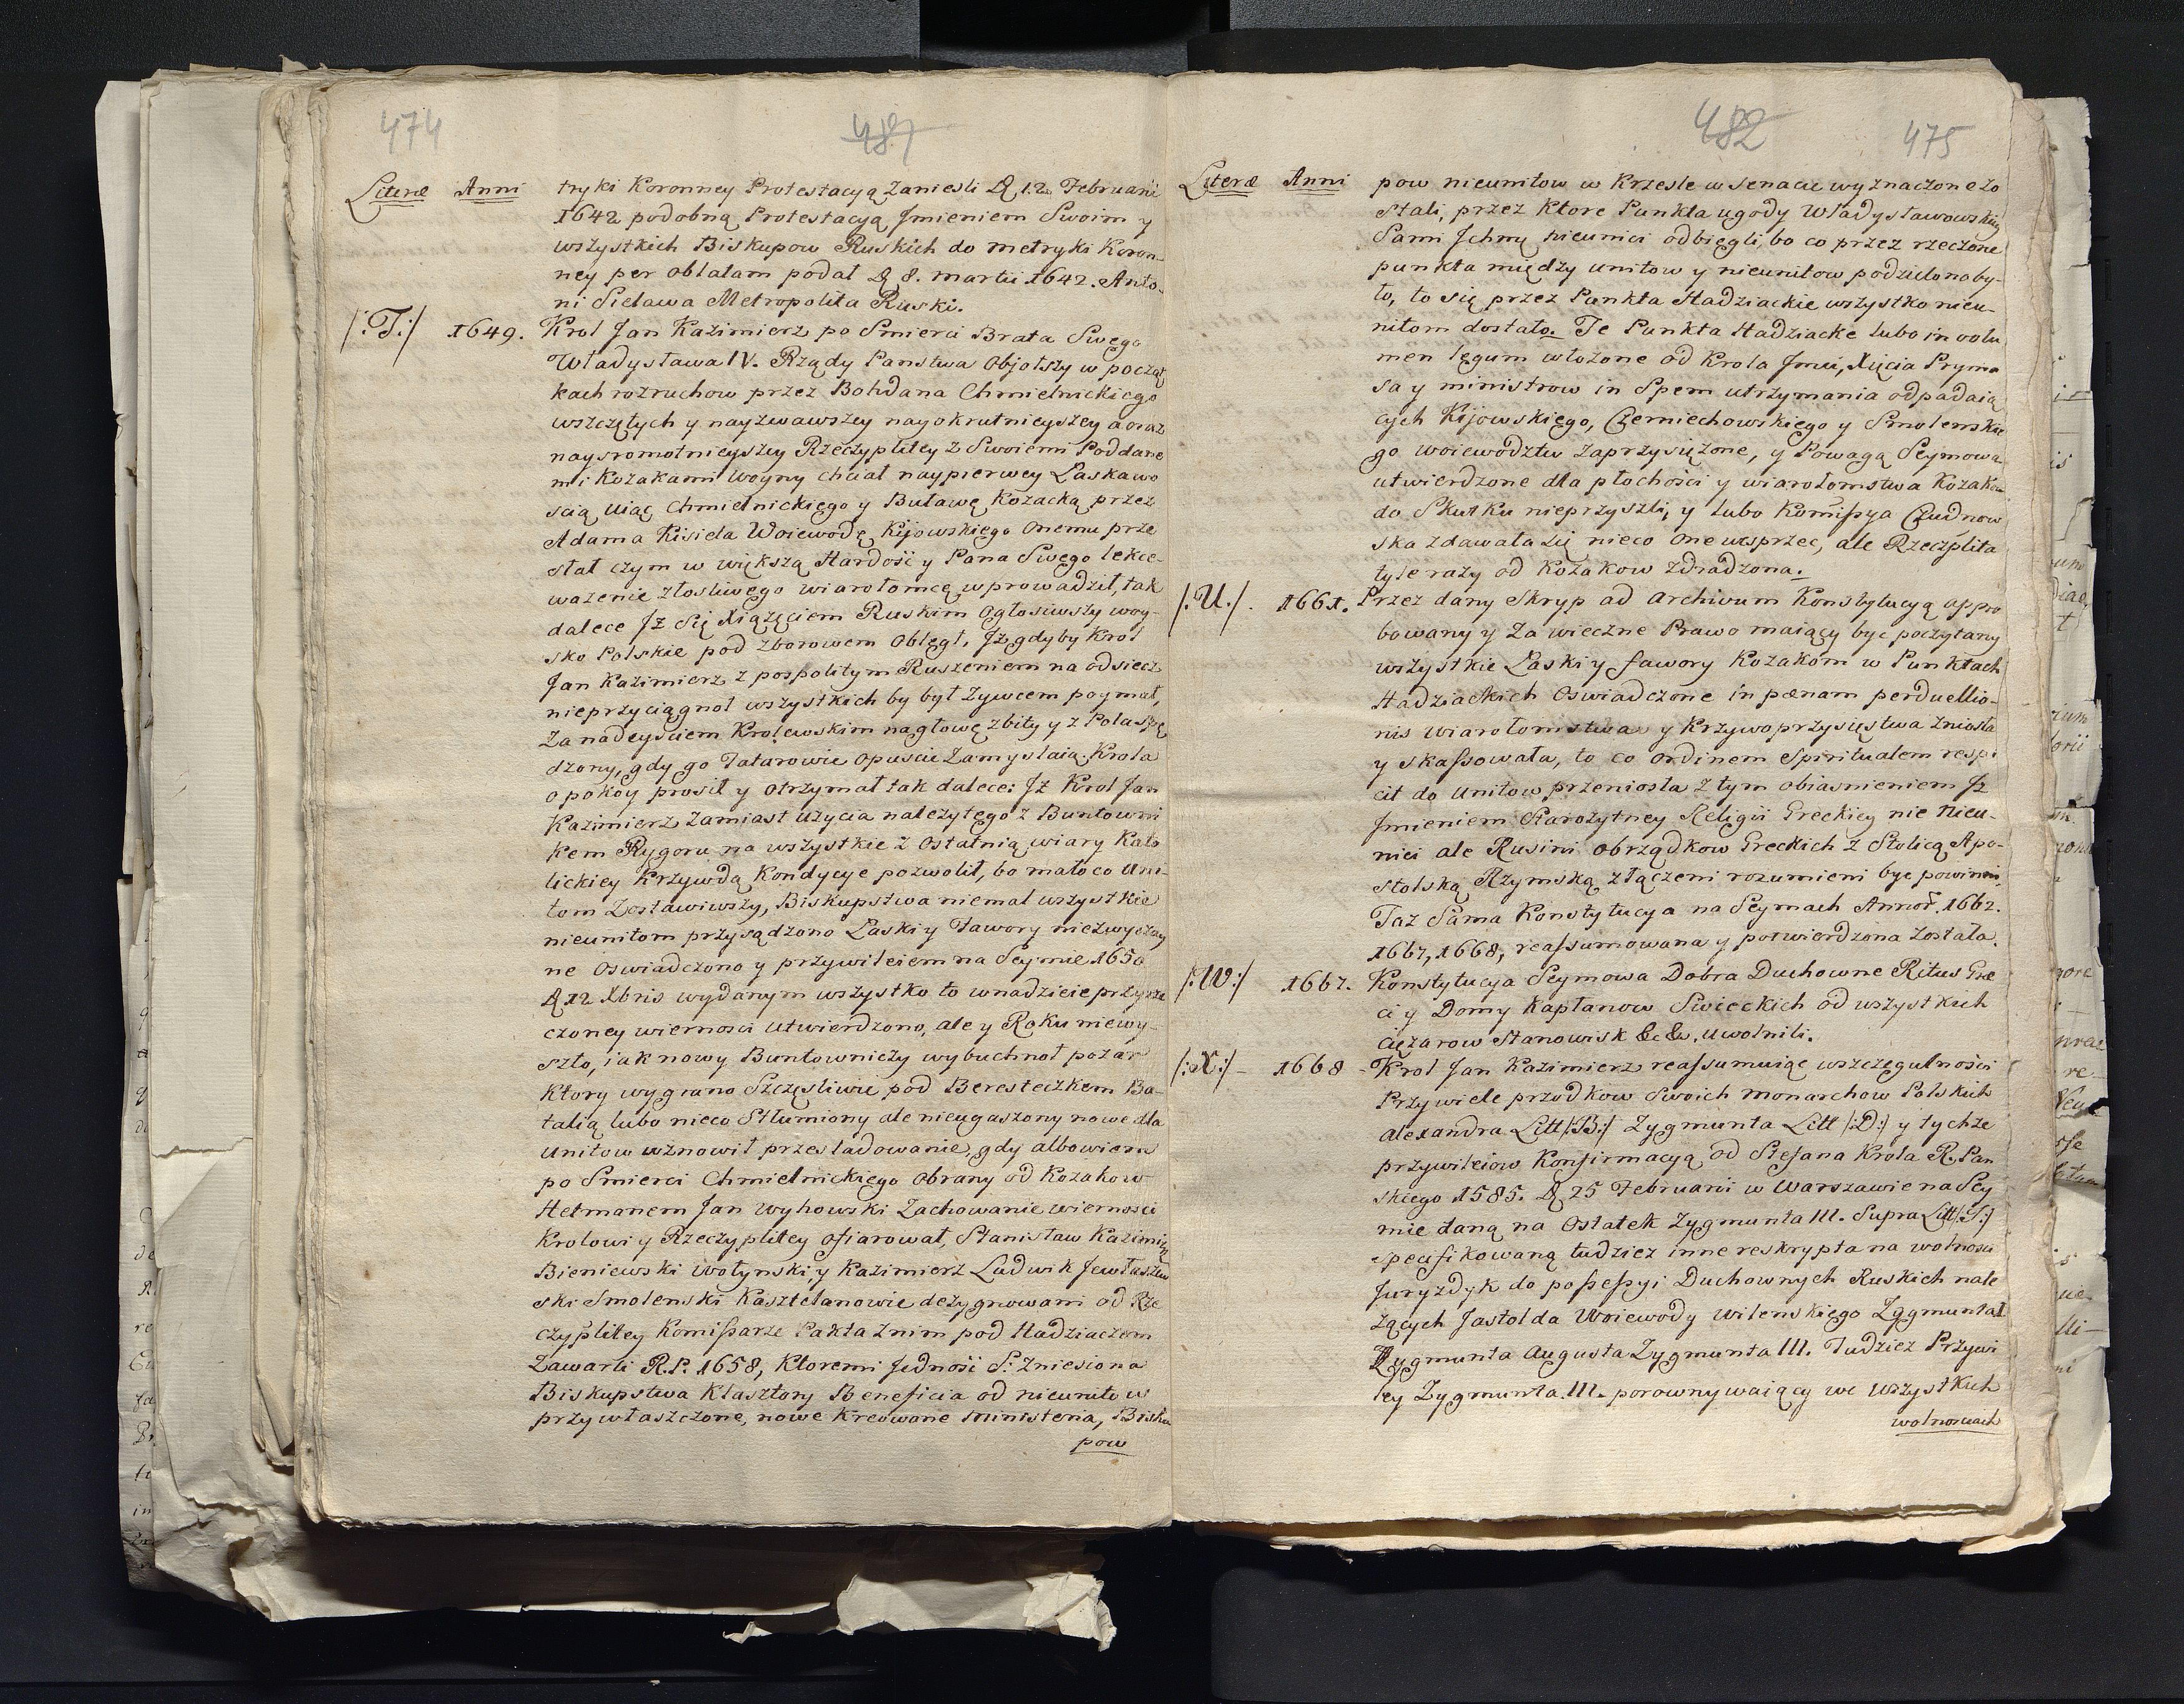 474
487
Literæ Anni
tryki Koronney Protestacyą Zaniesli D. 12. Februarii
1642 podobną Protestacyą Jmieniem Swoim y
wszystkich Biskupow Ruskich do metryki Koron-
ney per oblatam podał D. 8. martii 1642. Anto-
ni Sielawa Metropolita Ruski.
/:T:/ 1649. Krol Jan Kazimierz po Smierci Brata Swego
Władysława IV. Rządy Panstwa Objołszy w począt
kach rozruchow przez Bohdana Chmielnickiego
wszczętych y nayzwawszey nayokrutnieyszey a oraz
naysromotnieyszey Rzeczyplitey z Swoiemi Poddane
mi Kozakami Woyny chciał naypierwey Łaskawo
scią Uiąc Chmielnickiego y Buławę Kozacką przez
Adama Kisiela Woiewodę Kijowskiego Onemu prze
słał czym w większą Hardość y Pana Swego lekce-
ważenie złosliwego wiarołomcę wprowadził, tak
dalece Jż Się Xiążęciem Ruskim Ogłosiwszy woy-
sko Polskie pod Zborowem Obległ, Jż gdyby Krol
Jan Kazimierz z pospolitym Ruszeniem na odsiecz
nieprzyciągnoł wszystkich by był Zywcem poymał,
Za nadeysciem Krolewskim nagłowę zbity y z
dzony, gdy go Tatarowie Opuscic Zamyslaią Krola
o pokoy prosił y otrzymał tak dalece: Jż Krol Jan
Kazimierz Zamiast Użycia należytego z Buntowni
kem Rygoru na wszystkie z Ostatnią wiary Kato
lickiey Krzywdą Kondycye pozwolił, bo mało co Uni-
tom Zostawiwszy, Biskupstwa niemal wszystkie
nieunitom przysądzono Łaski y Fawory niezwyczay
ne Oswiadczono y przywileiem na Seymie 1650
D. 12 Xbris wydanym wszystko to wnadzieie przyrze
czoney wiernosci Utwierdzono, ale y Roku niewy-
szło, iak nowy Buntowniczy wybuchnoł pożar
Ktory wygrano Szczęsliwie pod Beresteczkem Ba-
talią lubo nieco Stłumiony ale nieugaszony nowe dla
Unitow wznowił przesladowanie, gdy albowiem
po Smierci Chmielnickiego Obrany od Kozakow
Hetmanem Jan Wyhowski Zachowanie wiernosci
Krolowi y Rzeczyplitey ofiarował, Stanisław Kazimierz
Bieniewski Wołynski, y Kazimierz Ludwik Jewłaszew
ski Smolenski Kasztelanowie dezygnowani od Rze
czyplitey Komissarze Pakta Znim pod Hadziaczem
Zawarli R.P. 1658, Ktoremi Jedność S: Zniesiona
Biskupstwa Klasztory Beneficia od nieunitow
przywłaszczone, nowe Kreowane Ministeria, Bisku
pow
482
475
Literæ Anni
pow nieunitow w Krzesle w Senacie wyznaczone zo
stali, przez Ktore Punkta ugody Władysławowskiey
Sami Jchmę nieunici odbiegli, bo co przez rzeczone
punkta między unitow y nieunitow podzielono by-
ło, to się przez Punkta Hadziackie wszystko nieu-
nitom dostało. Te Punkta Hadziacke lubo in volu
men legum włożone od Krola Jmci, Xięcia Pryma
sa y ministrow in Spem utrzymania odpadaią
cych Kijowskiego, Czerniechowskiego y Smolenskie
go Woiewodztw Zaprzysiężone, y Powagą Seymową
utwierdzone dla płochości y wiarołomstwa Kozakow
do Skutku nieprzyszli, y lubo Komissya Cudnow
ska zdawała się nieco One wesprzec, ale Rzeczplita
tyle razy od Kozakow zdradzona.
/:U:/. 1661. Przez dany Skryp ad Archivum Konstytucyą appro
bowany y Za wieczne Prawo maiący być poczytany
wszystkie Łaski y fawory Kozakom w Punktach
Hadziackich Oswiadczone in pænam perduellio-
nis Wiarołomstwa y Krzywoprzysięstwa Zniosła
y skassowała, to co Ordinem Spiritualem respi
cit do Unitow przeniosła z tym obiasnieniem Jż
Jmieniem Starozytney Religii Greckiey nie nieu-
nici ale Rusini Obrządkow Greckich z Stolicą Apo-
stolską Rzymską złączeni rozumieni być powinni,
Taż Sama Konstytucya na Seymach Annor. 1662.
1667, 1668, reassumowana y potwierdzona została.
/:W:/ 1667. Konstytucya Seymowa Dobra Duchowne Ritus Græ
ci y Domy Kapłanow Swieckich od wszystkich
ciężarow Stanowisk &c &c. Uwolnili.
/:X:/ - 1668 - Krol Jan Kazimierz reassumuiąc wszczegulności
Przywiele przodkow Swoich monarchow Polskich
alexandra Litt /:B:/ Zygmunta Litt /:D:/ y tychze
przywileiow Konfirmacyą od Stefana Krola R. Pan
skiego 1585. D. 25 Februarii w Warszawie na Sey
mie daną na Ostatek Zygmunta III. Supra Litt /:S:/
specifikowaną tudziez inne reskrypta na wolnosci
Juryzdyk do possessyi Duchownych Ruskich nale
żących Jastolda Woiewody wilenskiego Zygmunta I.
Zygmunta Augusta Zygmunta III. Tudziez Przywi
ley Zygmunta III. porownywaiący we wszystkich
wolnosciach